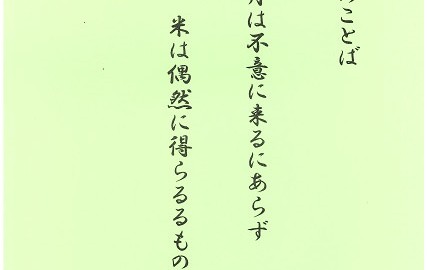 ことば
は不意に来るにあらず
米は偶然に得らるるもの